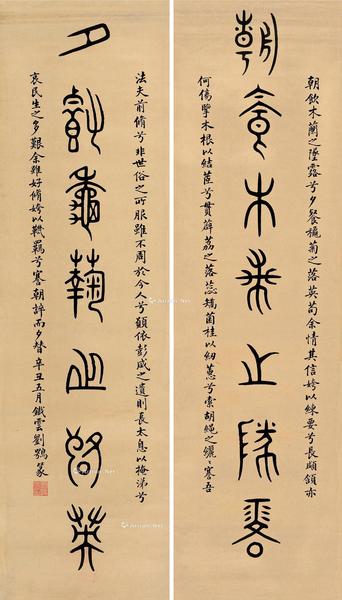 朝飲木蘭之墜露兮夕餐穐菊之落英苟余情其信姱以練要兮長顑頷亦
朝飲木蘭之墜露
何傷擥木根以結茝兮貫薜荔之落蕊矯菌桂以紉蕙兮索胡繩之纚〻謇吾
法夫前脩兮非世俗之所服雖不周於今人兮願依彭咸之遺則長太息以掩涕兮
夕餐龝菊之落英
哀民生之多艱余雖好脩姱以鞿羈兮謇朝誶而夕替辛丑五月鐵雲劉鶚篆